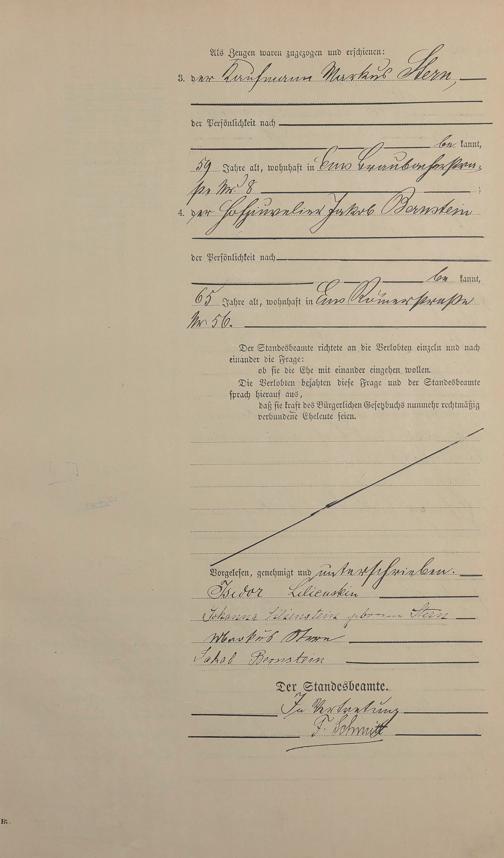 Als Zeugen waren zugezogen und erschienen:
3. der Kaufmann Markus Stern,
der Persönlichkeit nach
be kannt,
59 Jahre alt, wohnhaft in Ems Braubacherstra-
ße Nr 8 ;
4. der Hofjuwelier Jakob Bernstein
der Persönlichkeit nach
be kannt,
65 Jahre alt, wohnhaft in Ems Römerstraße
Nr. 56.
Der Standesbeamte richtete an die Verlobten einzeln und nach
einander die Frage:
ob sie die Ehe mit einander eingehen wollen.
Die Verlobten bejahten diese Frage und der Standesbeamte
sprach hierauf aus,
daß sie kraft des Bürgerlichen Gesetzbuchs nunmehr rechtmäßig
verbundene Eheleute seien.
Vorgelesen, genehmigt und unterschrieben.
Isidor Lilienstein
Johanna Lilienstein geborene Stern
Markus Stern
Jakob Bernstein
Der Standesbeamte.
In Vertretung
F. Schmitt